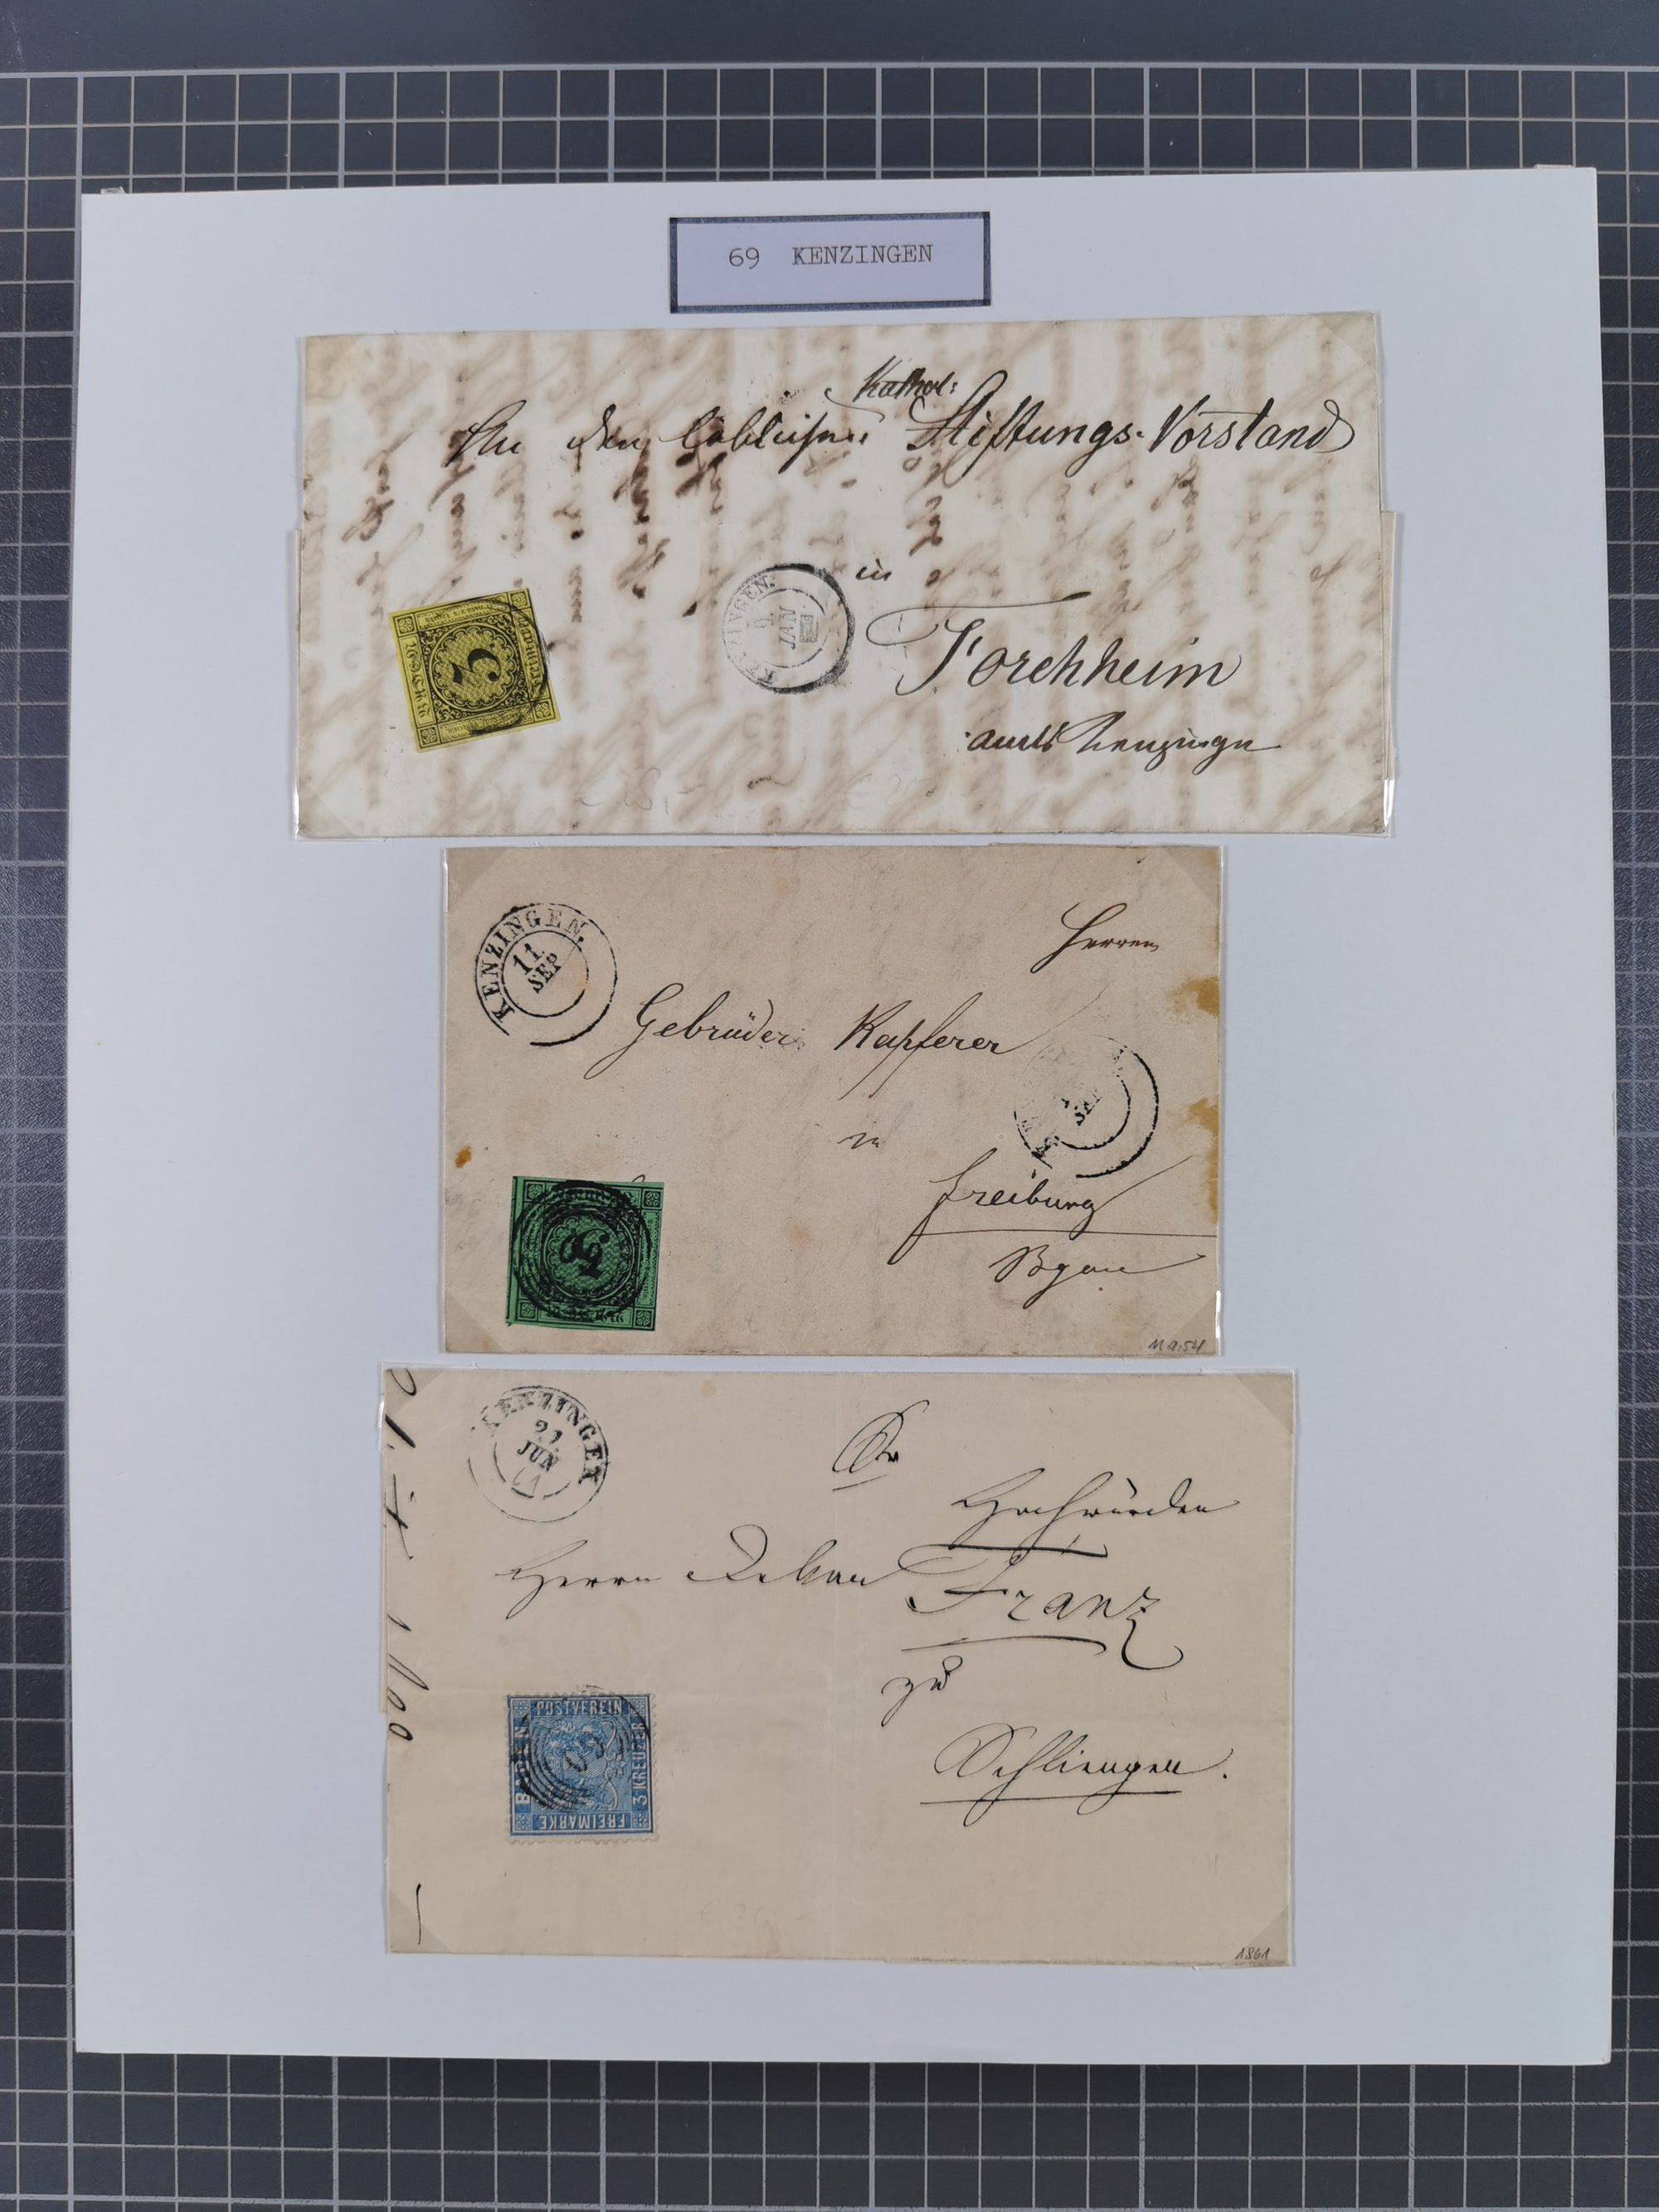 69 KENZINGEN
Kathol:
An den löblichen Stiftungs-Vorstand
in
Forchheim
amts Kenzingen
KENZINGEN.
9
3
KENZINGEN.
11.
SEP
Herren
Gebrüder Kapferer
in
Freiburg
Bgau
SEP
11.9.54
KENZINGEN
JUN
Sr
Hochwürden
Herrn Dekan Franz
zu
Schliengen.
POSTVEREIN
BADEN
3 KREUZER
FREIMARKE
69
1861